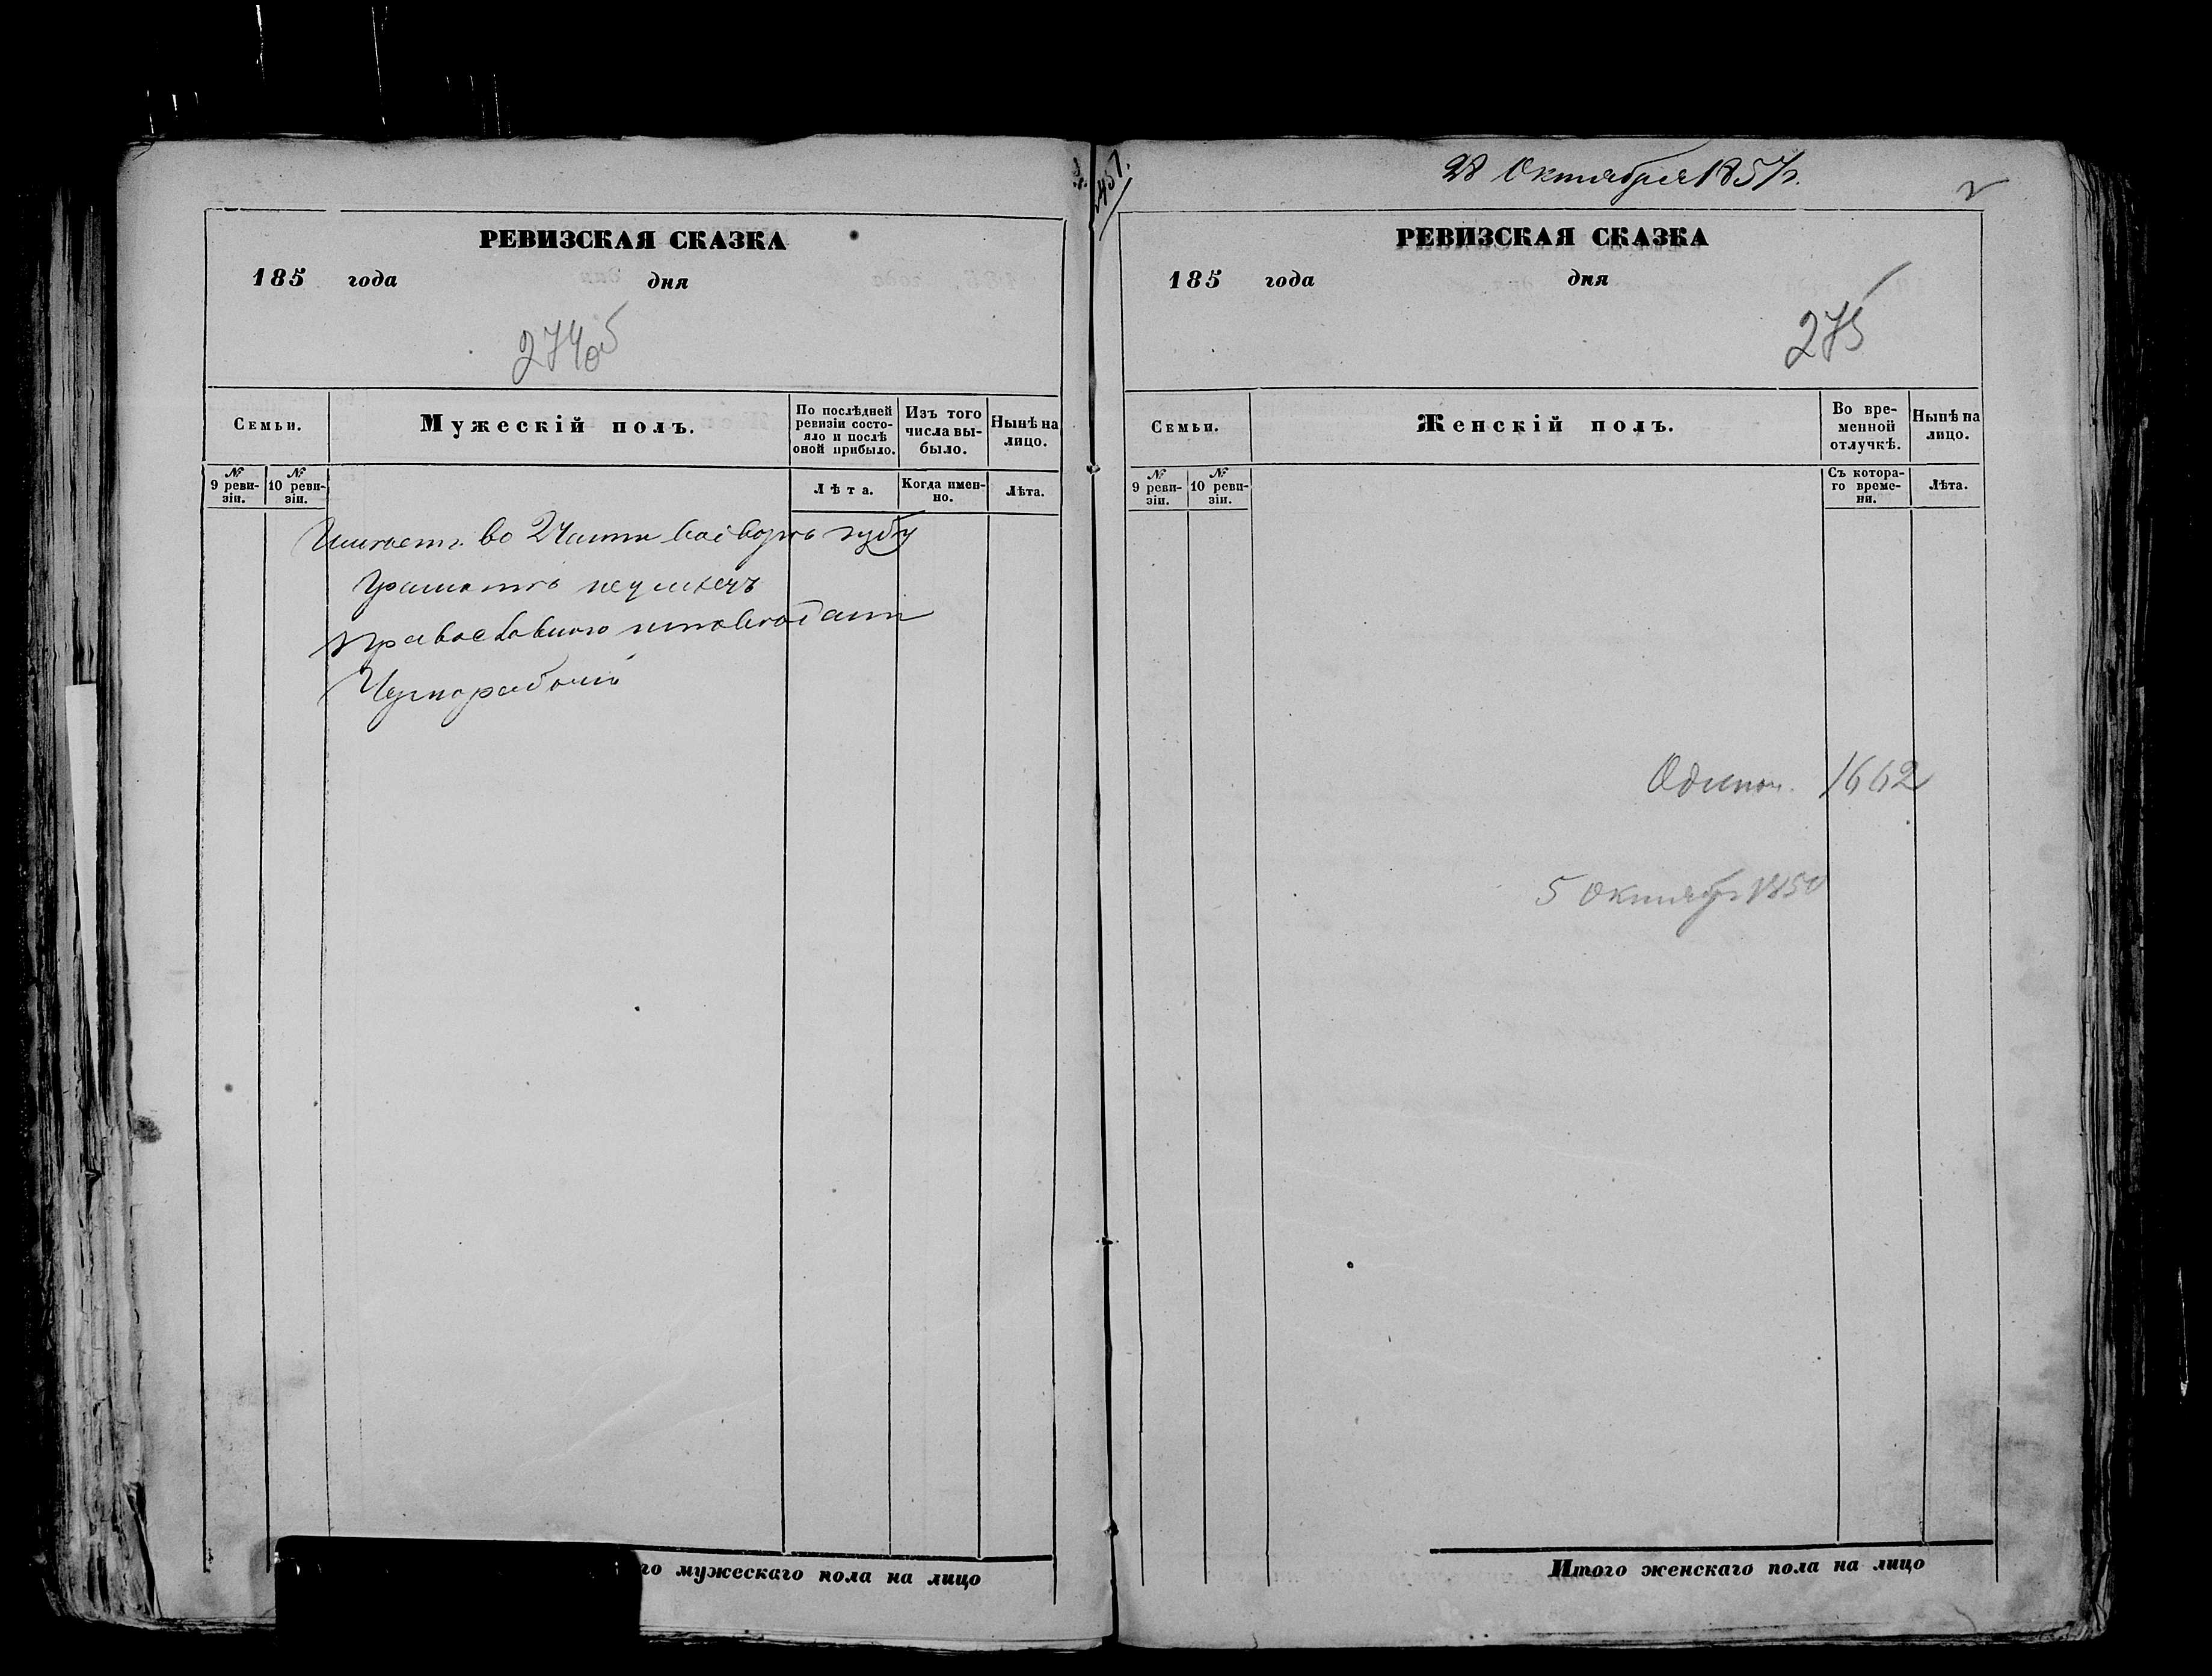 РЕВИЗСКАЯ СКАЗКА
185 года дня
274об
Семьи.
Мужескій полъ.
По послѣдней ревизіи состояло и послѣ оной прибыло.
Изъ того числа выбыло.
Нынѣ на лицо.
№ 9 ревизіи.
№ 10 ревизіи.
Лѣта.
Когда именно.
Лѣта.
во 2 части
грамотѣ неумѣетъ
православного
Чернорабочій
го мужескаго пола на лицо
28 Октября 1857г.
РЕВИЗСКАЯ СКАЗКА
185 года дня
275
Семьи.
Женскій полъ.
Во временной отлучкѣ.
Нынѣ на лицо.
№ 9 ревизіи.
№ 10 ревизіи.
Съ котораго времени.
Лѣта.
Одинок. 1662
5 Октября 1850
Итого женскаго пола на лицо